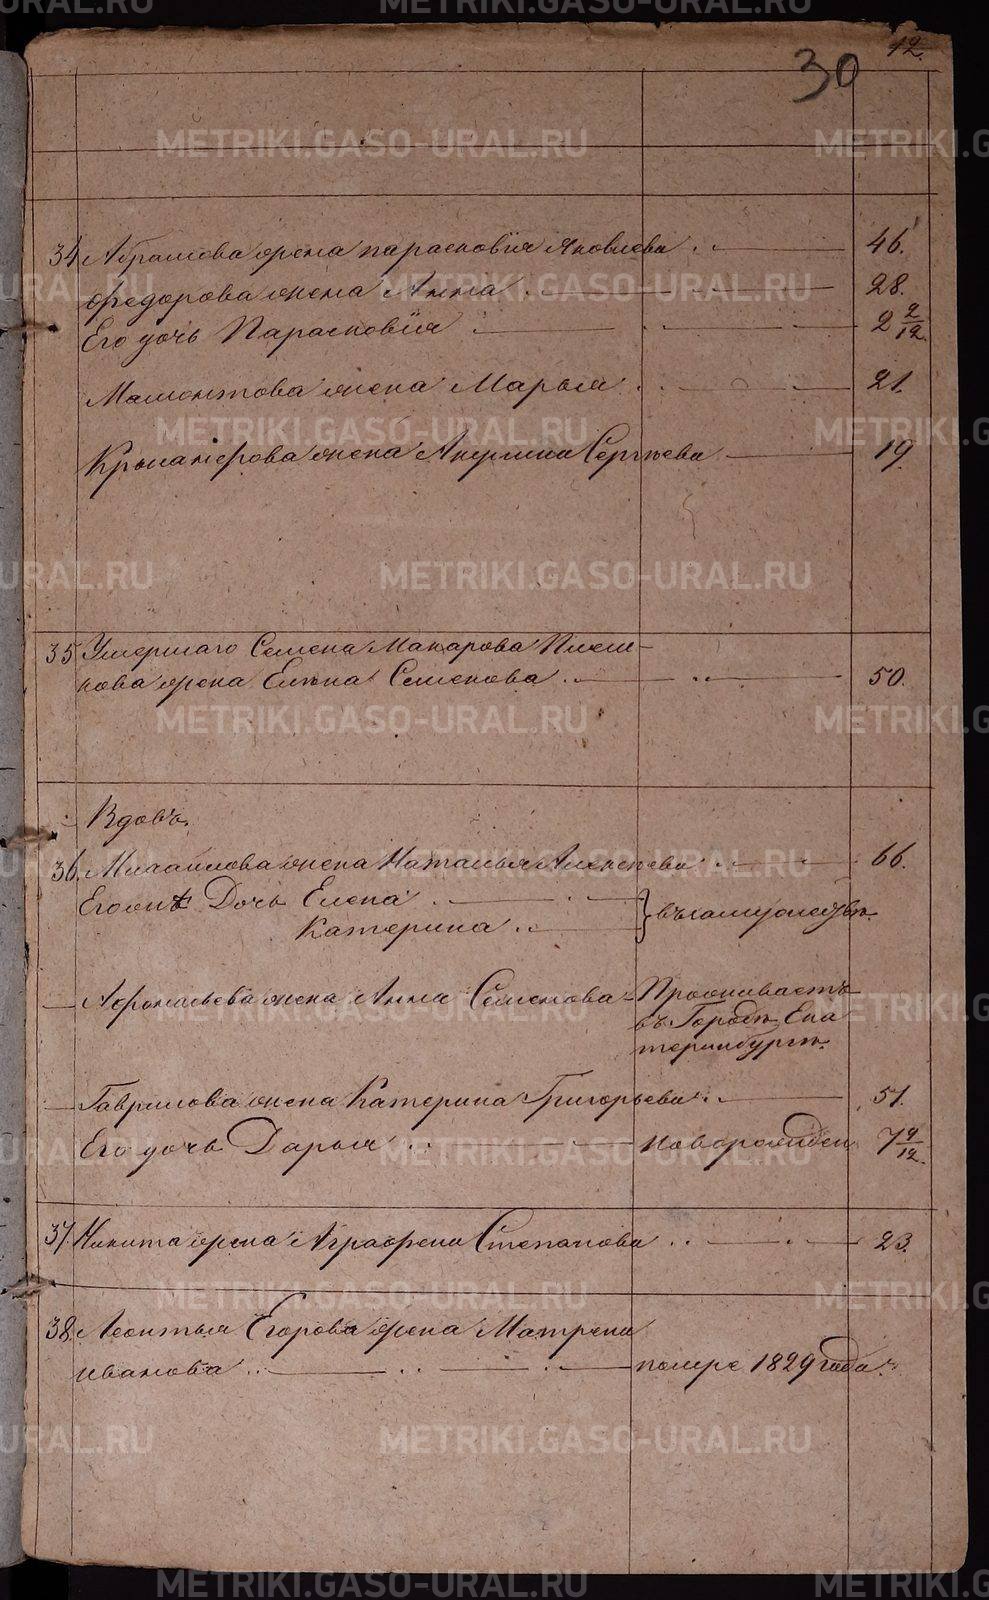 12.
30
34 Абрамова жена Парасковия Яковлева 46.
Федорова жена Анна 28.
Его дочь Парасковия 2 2/12
Мамонтова жена Марья 21.
жена Акулина Сергѣева 19.
35 Умершаго Семена Макарова
жена Елена Семенова 50.
Вдовъ.
36. Михайлова жена Наталья Алексѣева 66.
Его же Дочь Елена
Катерина } въ замужествѣ.
Афонасьева жена Анна Семенова Проживаетъ
въ Городѣ Ека
теринбургѣ.
Гаврилова жена Катерина Григорьева 51.
Его дочь Дарья новорожден 7 4/12.
37. Никита жена Аграфена Степанова 23.
38. Леонтья Егорова жена Матрена
иванова помре 1829 года.
METRIKI.GASO-URAL.RU